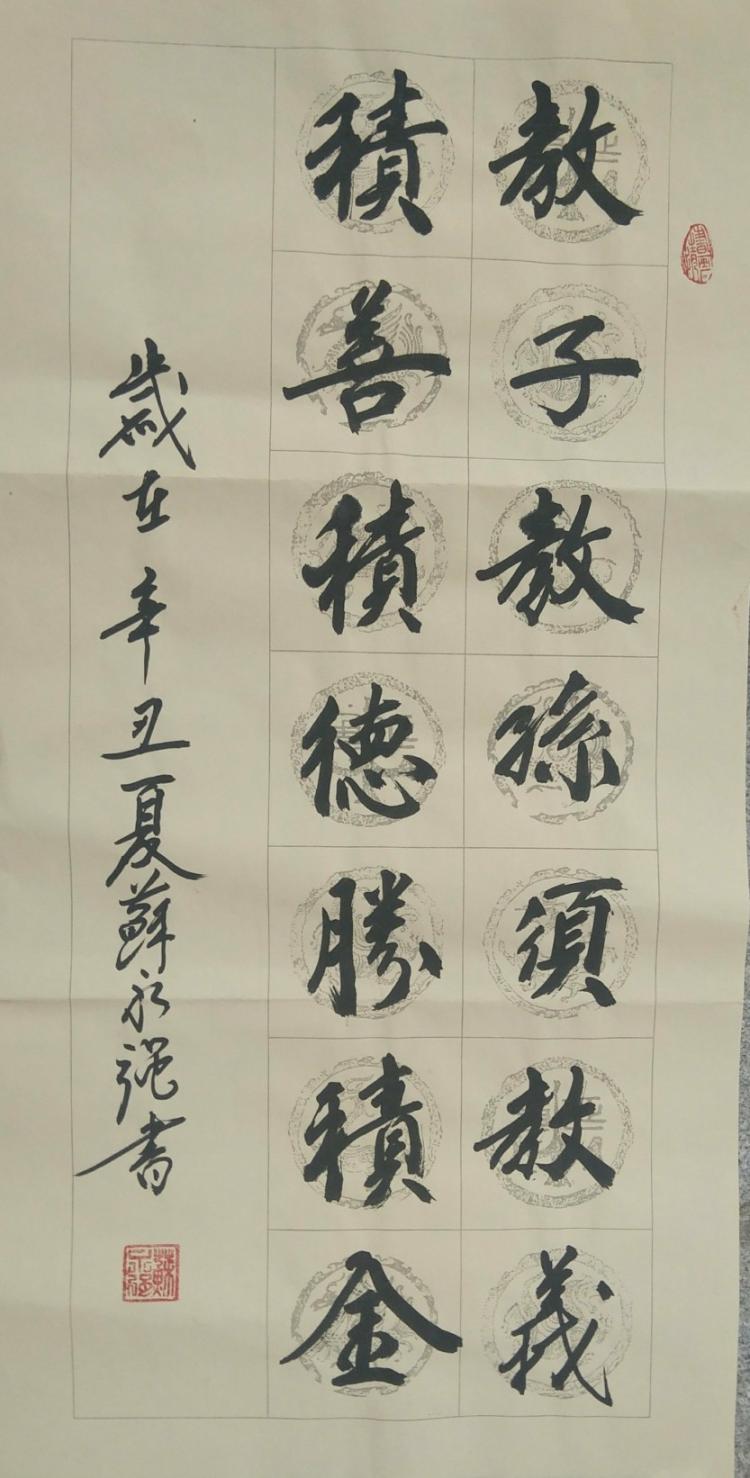 教子教孫須教義
積善積德勝積金
歲在辛丑夏蘇永强書